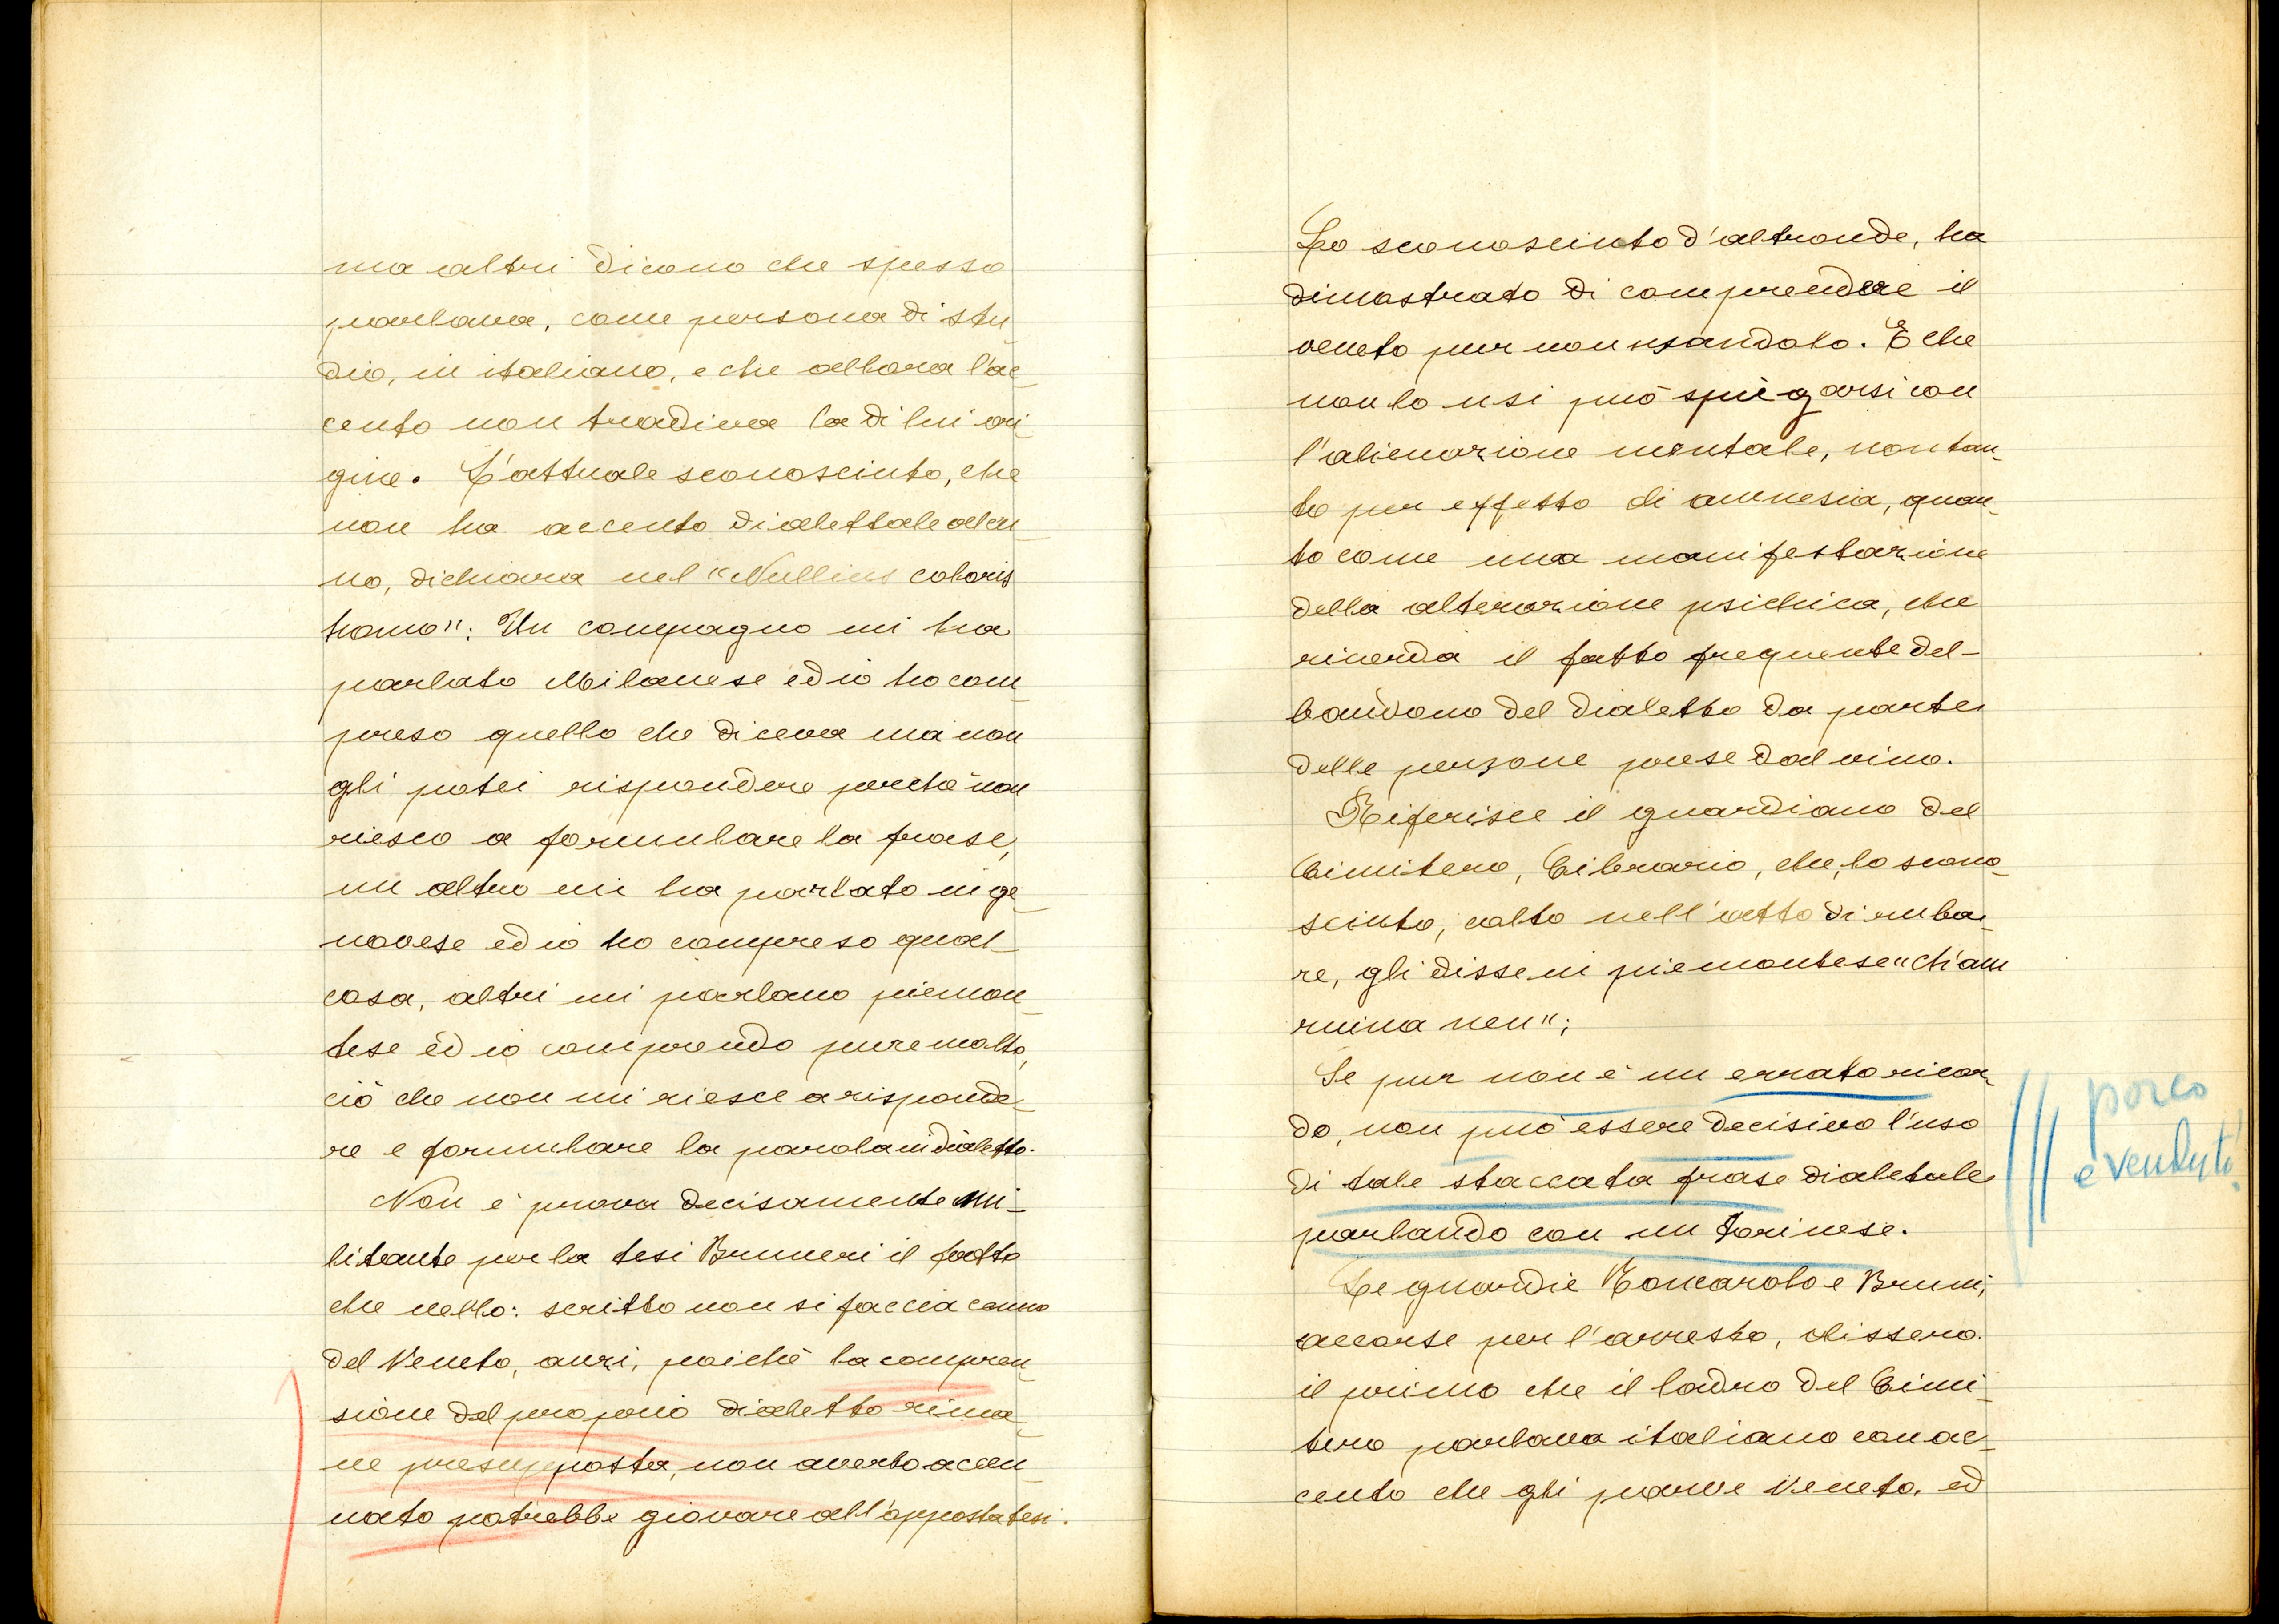 ma altri dicono che spesso
parlava, come persona di stu_
dio, in italiano, e che allora l'ac_
cento non tradiva la di lui ori_
gine. L'attuale sconosciuto, che
non ha accento dialettale alcu_
no, dichiara nel "Nullius coloris
homo": Un compagno mi ha
parlato Milanese ed io ho com_
preso quello che diceva ma non
gli potei rispondere perchè non
riesco a formulare la frase,
un altro mi ha parlato in ge_
novese ed io ho compreso qual_
cosa, altri mi parlano piemon_
tese ed io comprendo pure molto,
ciò che non mi riesce a risponde_
re e formulare la parola in dialetto.
Non è prova decisamente mi_
litante per la tesi Bruneri il fatto
che nello: scritto non si faccia cenno
del Veneto, anzi, poichè la compren_
sione del proprio dialetto rima_
ne presupposta, non averlo accen_
nato potrebbe giovare all'opposta tesi.
Lo sconosciuto d'altronde, ha
dimostrato di comprendere il
veneto pur non usandolo. E che
non lo usi può spiegarsi con
l'alienazione mentale, non tan_
to per effetto di amnesia, quan_
to come una manifestazione
della alterazione psichica, che
ricorda il fatto frequente del_
bandono del dialetto da parte
delle persone prese dal vino.
Riferisce il guardiano del
Cimitero, Cibrario, che, lo scono_
sciuto, colto nell'atto di ruba_
re, gli disse in piemontese "ch'am
ruina nen";
Se pur non è un errato ricor_
do, non può essere decisivo l'uso
di tale staccata frase dialetale
parlando con un torinese.
porco
e venduto!
Le guardie Toncarolo e Bruni,
accorse per l'arresto, dissero.
il primo che il ladro del Cimi_
tero parlava italiano con ac_
cento che gli parve Veneto, ed